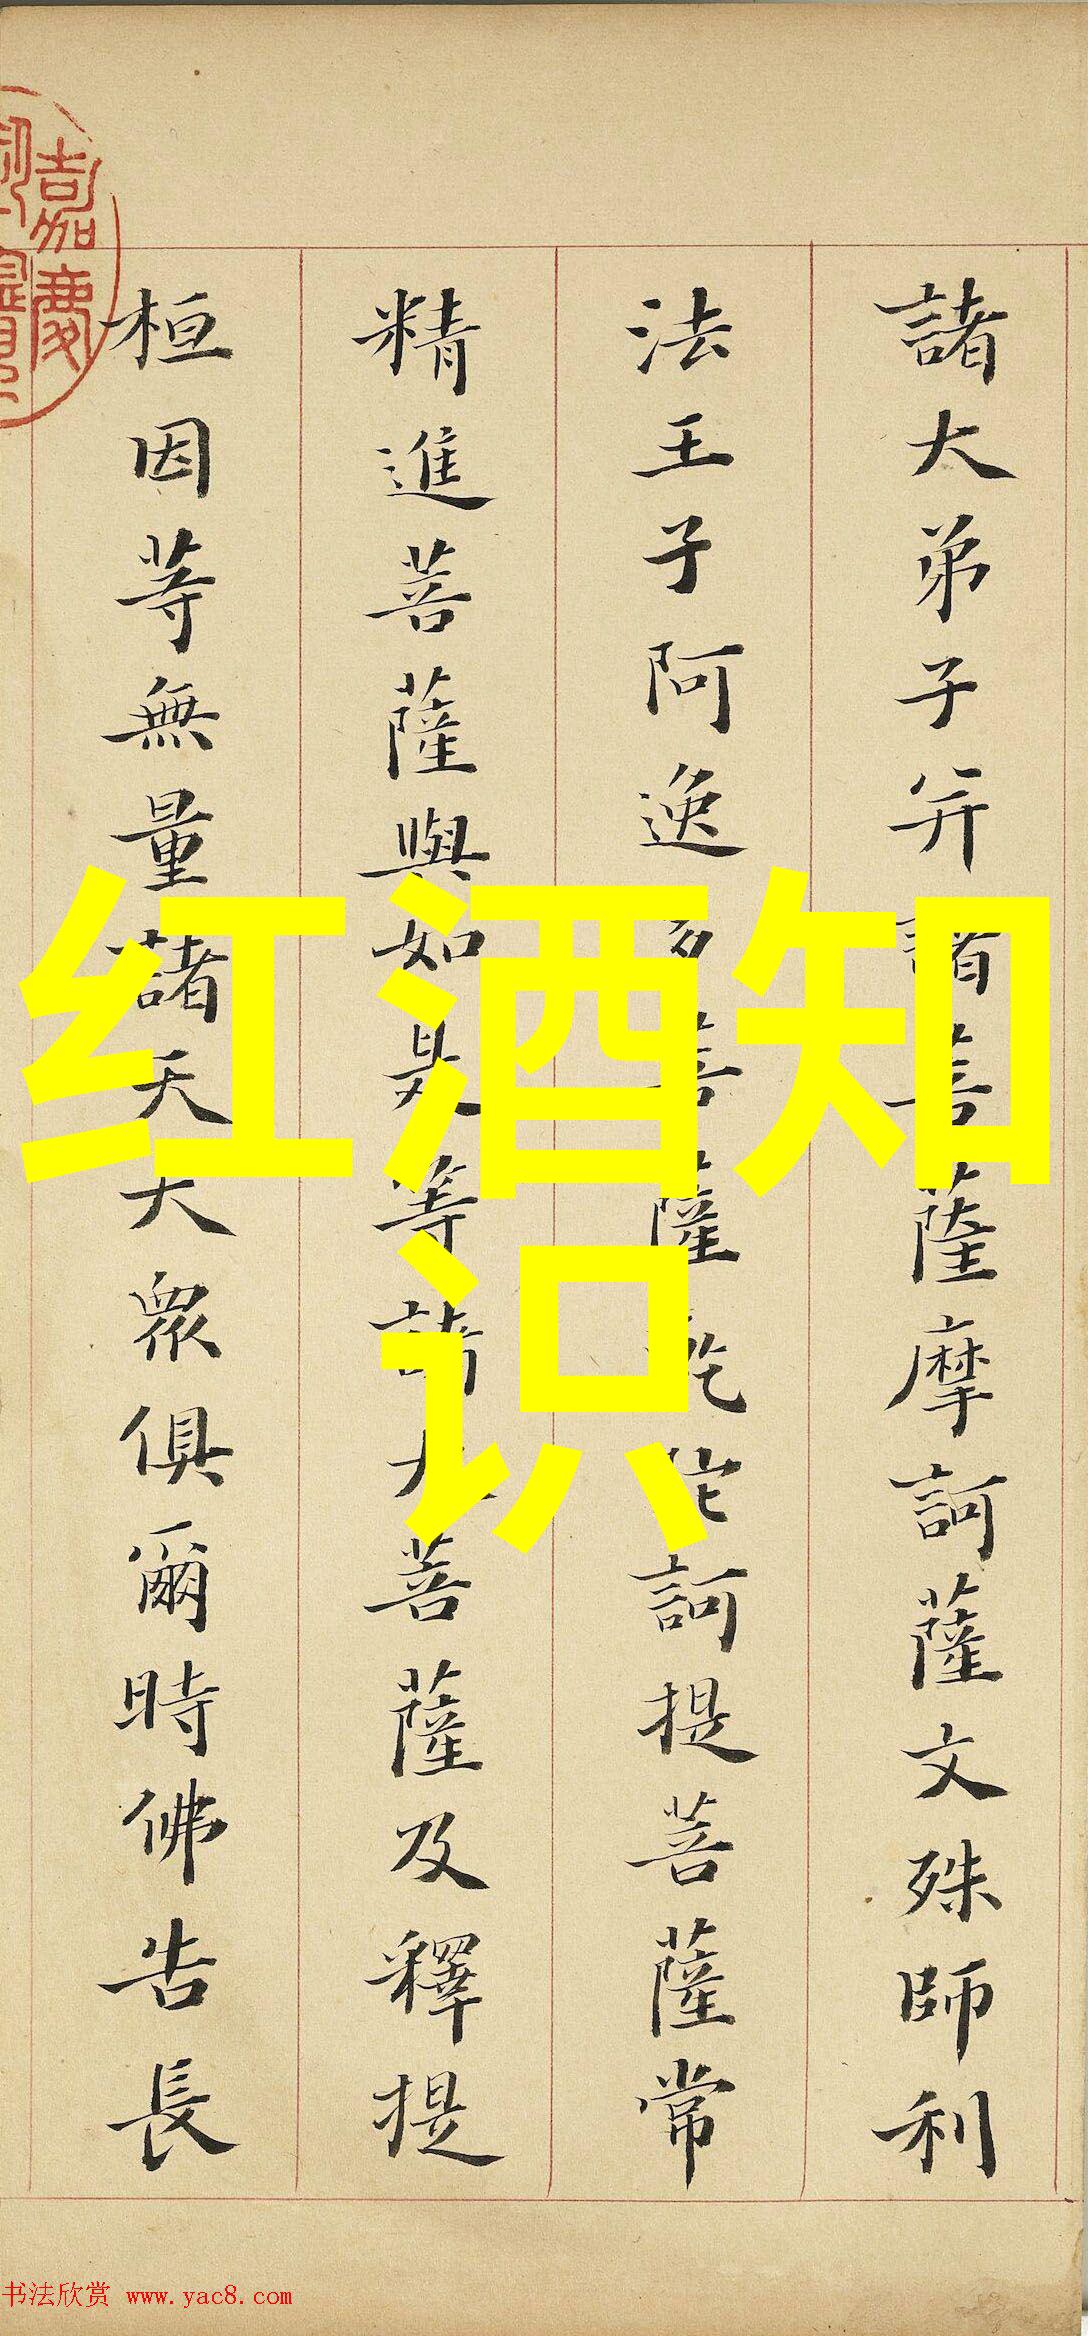 諸大弟子并諸菩薩摩訶薩文殊師利
法王子阿逸多菩薩乾陀訶提菩薩常
精進菩薩與如是等諸大菩薩及釋提
桓因等無量諸天大眾俱爾時佛告長
嘉慶
红酒知
识
书法欣赏 www.yac8.com